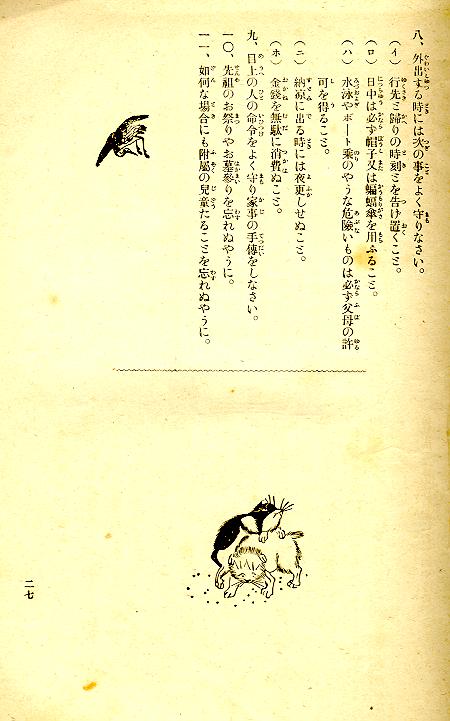 八、外出する時には次の事をよく守りなさい。
(イ) 行先と歸りの時刻とを告げ置くこと。
(ロ) 日中は必ず帽子又は蝙蝠傘を用ふること。
(ハ) 水泳やボート乘のやうな危險いものは必ず父母の許
可を得ること。
(ニ) 納凉に出る時には夜更しせぬこと。
(ホ) 金錢を無駄に消費ぬこと。
九、目上の人の命令をよく守り家事の手傳をしなさい。
一〇、先祖のお祭りやお墓參りを忘れぬやうに。
一一、如何な場合にも附屬の兒童たることを忘れぬやうに。
二七